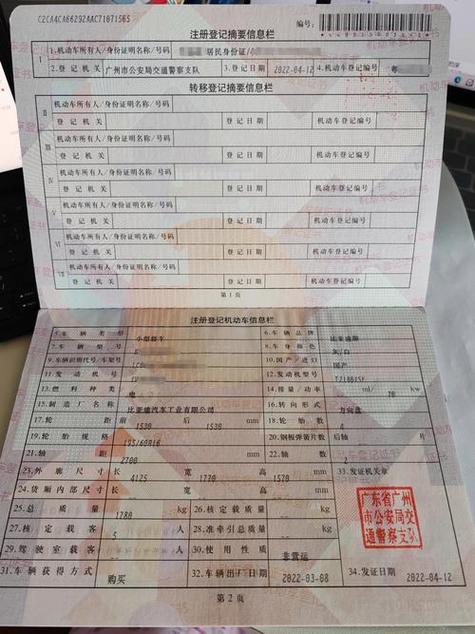 C2CA4CA66292AAC7187156S
注册登记摘要信息栏
编号:
I 1.机动车所有人/身份证明名称/号码 居民身份证/
2.登记机关 广州市公安局交通警察支队 3.登记日期 2022-04-12 4.机动车登记编号 粤
转移登记摘要信息栏
II 机动车所有人/身份证明名称/号码
登记机关 登记日期 机动车登记编号
III 机动车所有人/身份证明名称/号码
登记机关 登记日期 机动车登记编号
IV 机动车所有人/身份证明名称/号码
登记机关 登记日期 机动车登记编号
V 机动车所有人/身份证明名称/号码
登记机关 登记日期 机动车登记编号
VI 机动车所有人/身份证明名称/号码
登记机关 登记日期 机动车登记编号
VII 机动车所有人/身份证明名称/号码
登记机关 登记日期 机动车登记编号
第1页
注册登记机动车信息栏
5.车辆类型 小型轿车 6.车辆品牌 比亚迪牌
7.车辆型号 8.车身颜色 灰/白
9.车辆识别代号/车架号 10.国产/进口 国产
11.发动机号 12.发动机型号
13.燃料种类 电 14.排量/功率 ml/ 70 kw
15.制造厂名称 比亚迪汽车工业有限公司 16.转向形式 方向盘
17.轮距 前 1530 后 1530 mm 18.轮胎数 4
19.轮胎规格 195/60R16 20.钢板弹簧片数 后轴 片
21.轴距 2700 mm 22.轴数 2
23.外廓尺寸 长 4125 宽 1770 高 1570 mm 33.发证机关章
24.货厢内部尺寸 长 宽 高 mm
25.总质量 1780 kg 26.核定载质量 kg
27.核定载客 5 人 28.准牵引总质量 kg
29.驾驶室载客 人 30.使用性质 非营运
31.车辆获得方式 购买 32.车辆出厂日期 2022-03-08 34.发证日期 2022-04-12
广东省广州
市公安局交
通警察支队
第2页